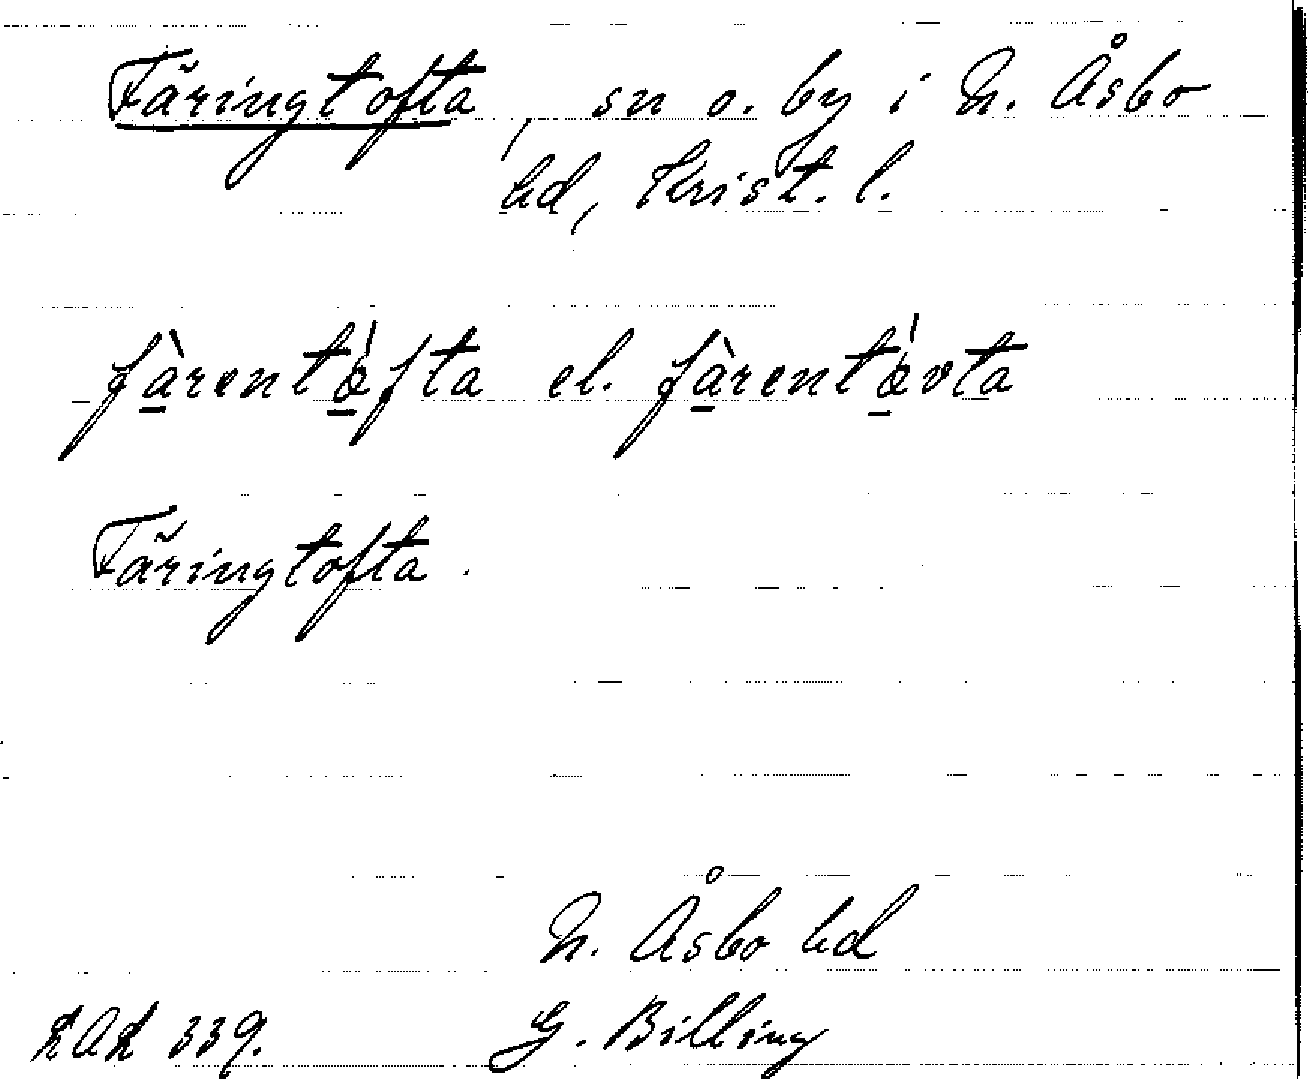 Färingtofta, sn o. by i N. Åsbo
hd, Krist. l.
fàrentǿfta el. fàrentǿvta
Färingtofta.
N. Åsbo hd
LAL 339. G. Billing